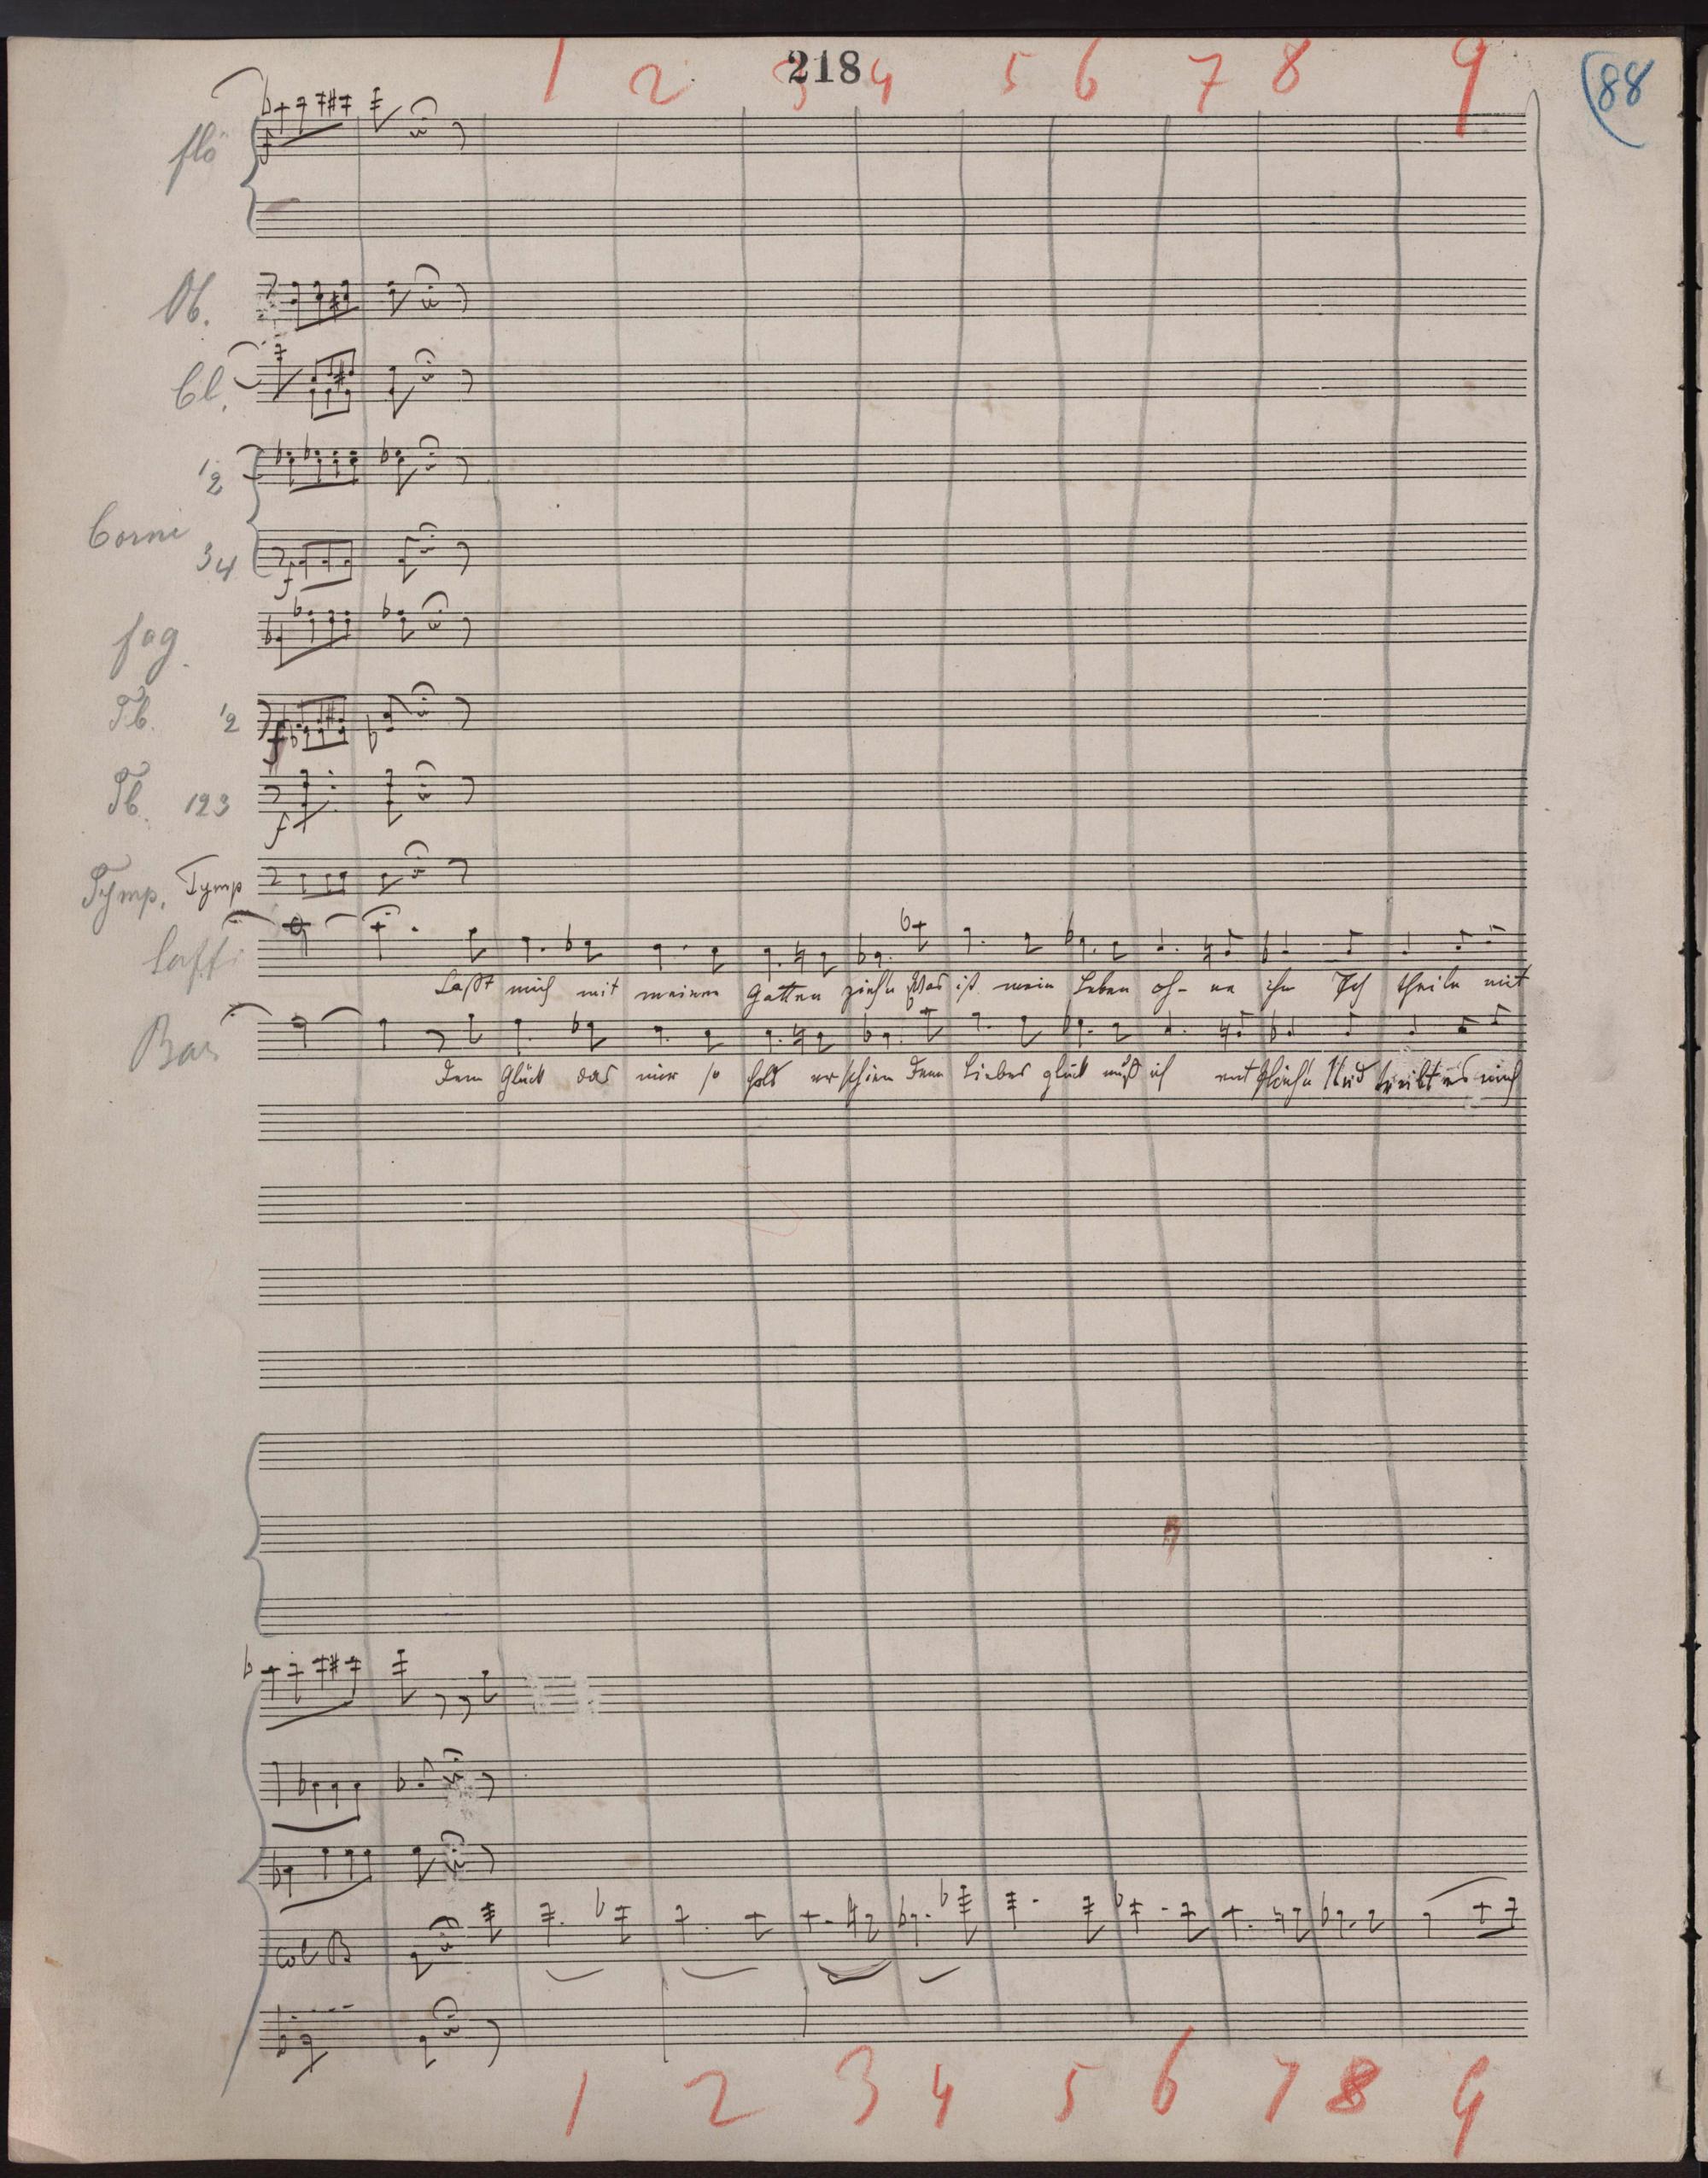 1 2 218 3 4 5 6 7 8 9 (88
flö
Ob.
Cl.
12
Corni
34
fag.
Tb. 12
f
Tb. 123
f
Tymp. Tymp
Saffi
Laßt mich mit meinem Gatten ziehn Was ist mein Leben oh-ne ihn Ich theile mit
Bar
Dem Glück das mir so hold erschien Dem Liebes glück muß ich entfliehn Und treibt es mich
col B
1 2 3 4 5 6 7 8 9